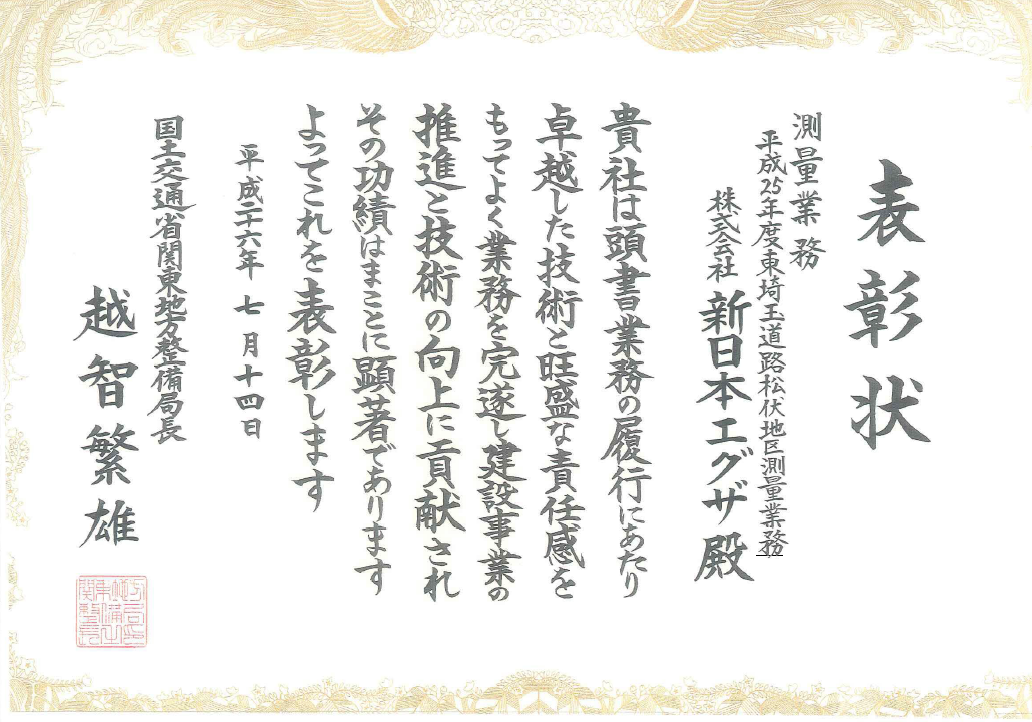 表彰状
測量業務
平成25年度東埼玉道路松伏地区測量業務
株式会社 新日本エグザ 殿
貴社は頭書業務の履行にあたり
卓越した技術と旺盛な責任感を
もってよく業務を完遂し建設事業の
推進と技術の向上に貢献され
その功績はまことに顕著であります
よってこれを表彰します
平成二十六年 七月十四日
国土交通省関東地方整備局長
越智繁雄